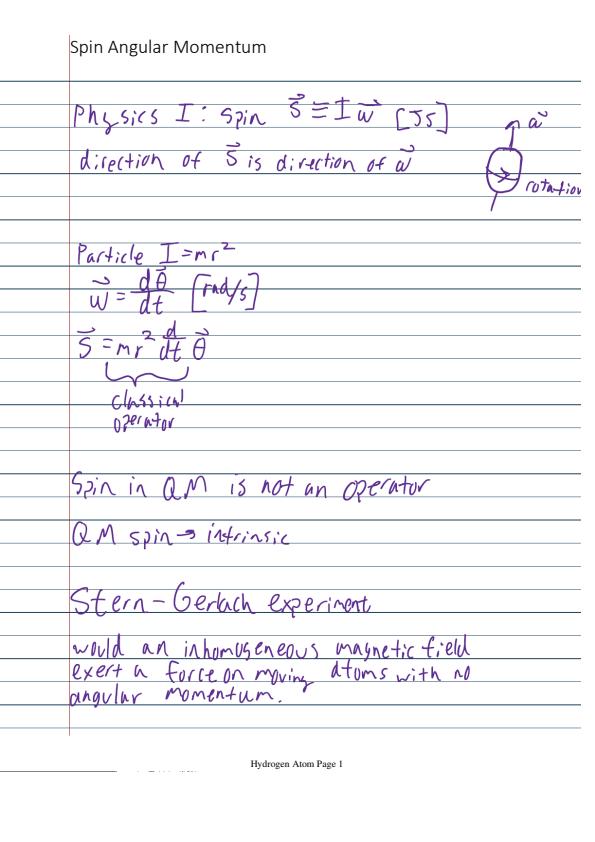 Spin Angular Momentum
Physics I: spin S⃗ ≡ I w⃗ [Js]
w⃗
direction of S⃗ is direction of w⃗
rotation
Particle I = mr²
w⃗ = dθ⃗/dt [rad/s]
S⃗ = mr² d/dt θ⃗
classical
operator
Spin in QM is not an operator
QM spin → intrinsic
Stern-Gerlach experiment
would an inhomogeneous magnetic field
exert a force on moving atoms with no
angular momentum.
Hydrogen Atom Page 1